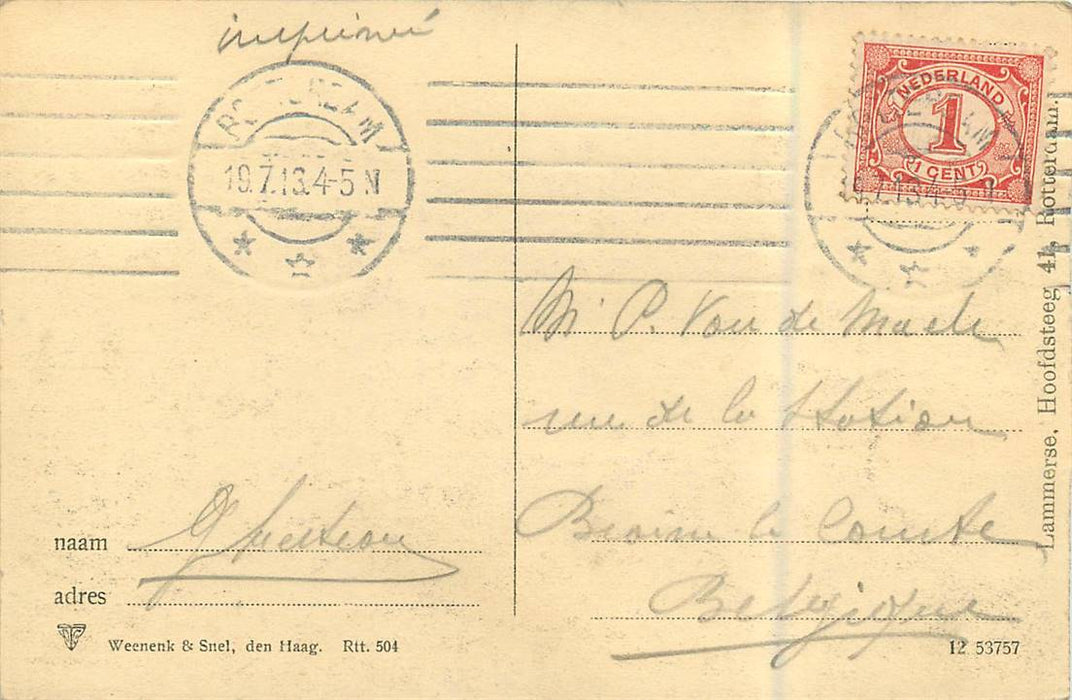 imprimé
ROTTERDAM
19.7.13.4-5 N
NEDERLAND
1
1 CENT
7.13.4-5 N
Mr P. Van de Maele
rue de la Station
Braine le Comte
Belgique
naam
adres
Weenenk & Snel, den Haag. Rtt. 504
12 53757
Lammerse, Hoofdsteeg 41, Rotterdam.